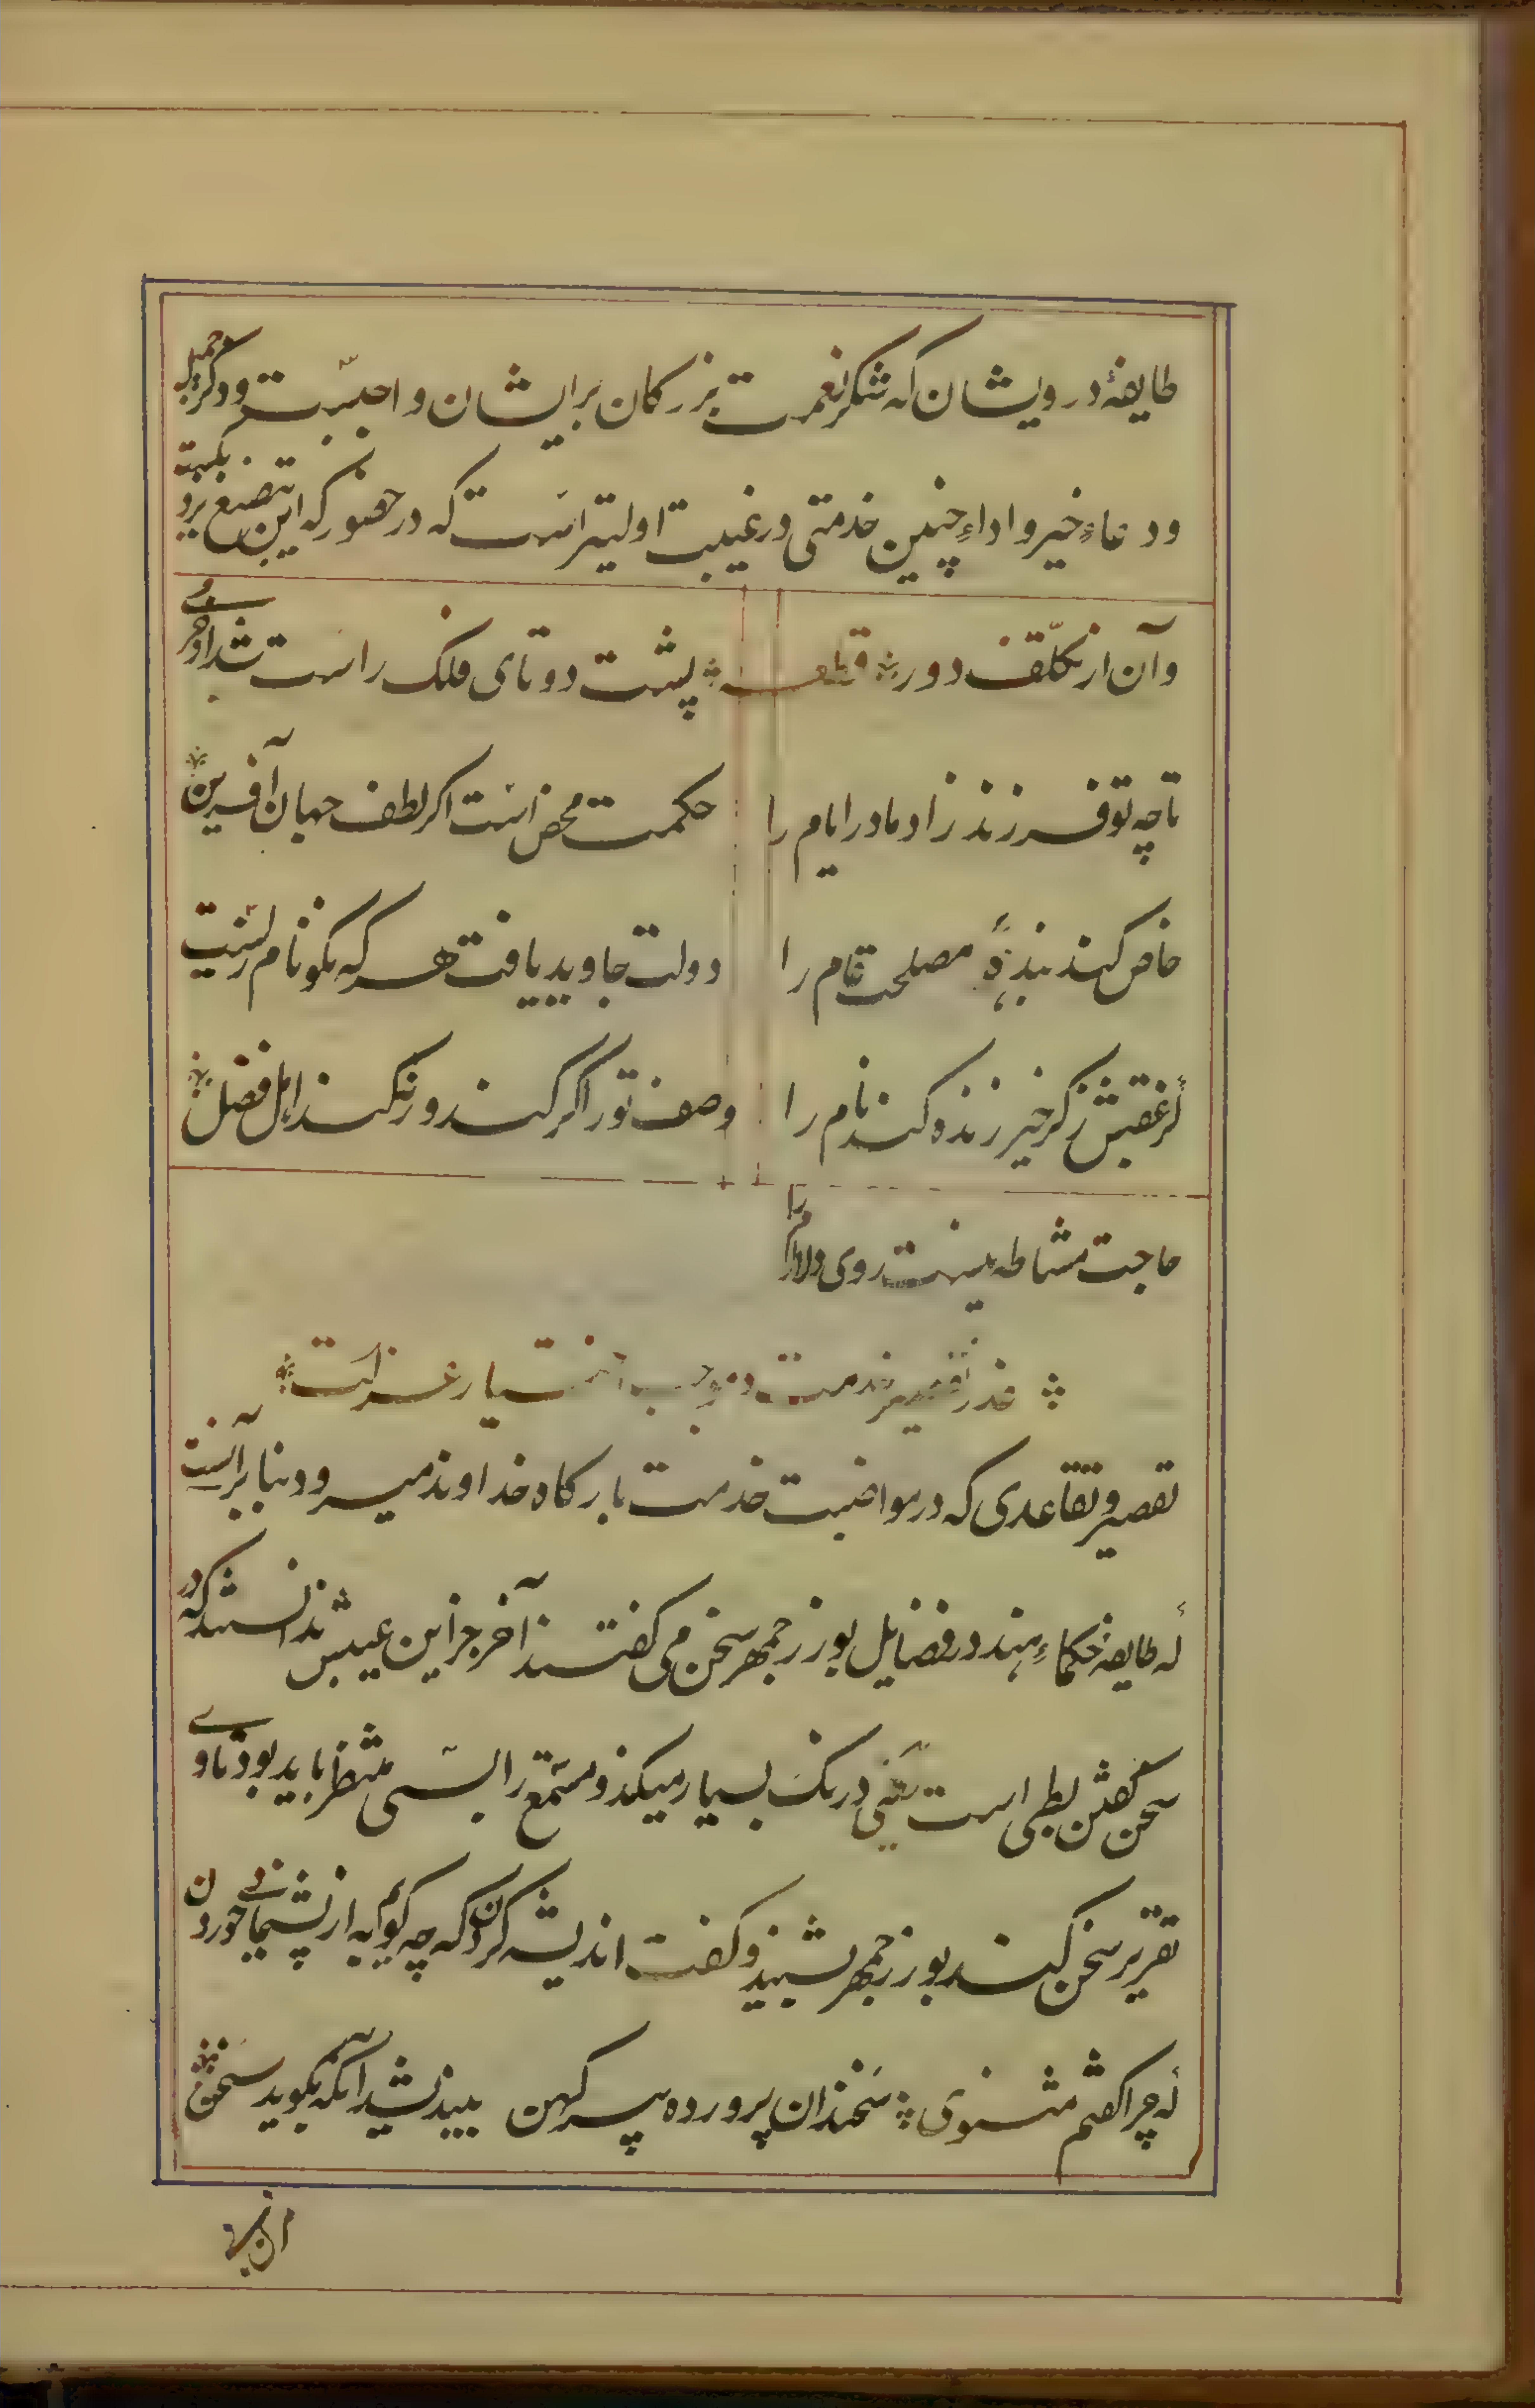 طایفهٔ درویشان که شکر نعمت بزرکان بر ایشان واجبست و ذکر جمیل
و دعاءِ خیر و اداءِ چنین خدمتی در غیبت اولیتر است که در حضور که این بتصنع نزدیکست
و آن از تکلّف دور قطعه پشت دوتای فلک راست شد از خرمی
تا چه تو فرزند زاد مادر ایام را حکمت محض است اکر لطف جهان آفرین
خاص کند بندهٔ مصلحت عام را دولت جاوید یافت هر که نکونام زیست
کز عقبش ذکر خیر زنده کند نام را وصف تو را کر کنند ور نکنند اهل فضل
حاجت مشاطه نیست روی دلارام را
عذر تقصیر خدمت و موجب اختیار عزلت
تقصیر و تقاعدی که در مواضبت خدمت بارکاه خداوند میرود بنا بر آنست
که طایفهٔ حکماءِ هند در فضایل بوزرجمهر سخن می کفتند آخر جز این عیبش ندانستند که در
سخن کفتن بطی است یعنی درنک بسیار میکند و مستمع را بسی منتظر باید بود تا وی
تقریر سخن کند بوزرجمهر بشنید و کفت اندیشه کردن که چه کویم به از پشیمانی خوردن
که چرا کفتم مثنوی سخندان پرورده پیر کهن بیندیشد آنکه بکوید سخن